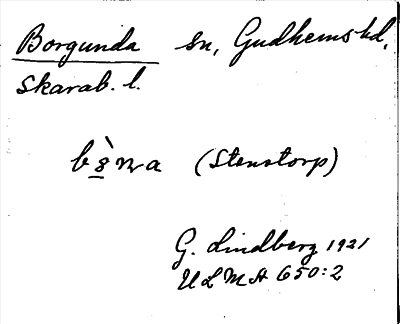 Borgunda sn, Gudhems hd,
Skarab. l.
(Stenstorp)
G. Lindberg 1921
ULMA 650:2